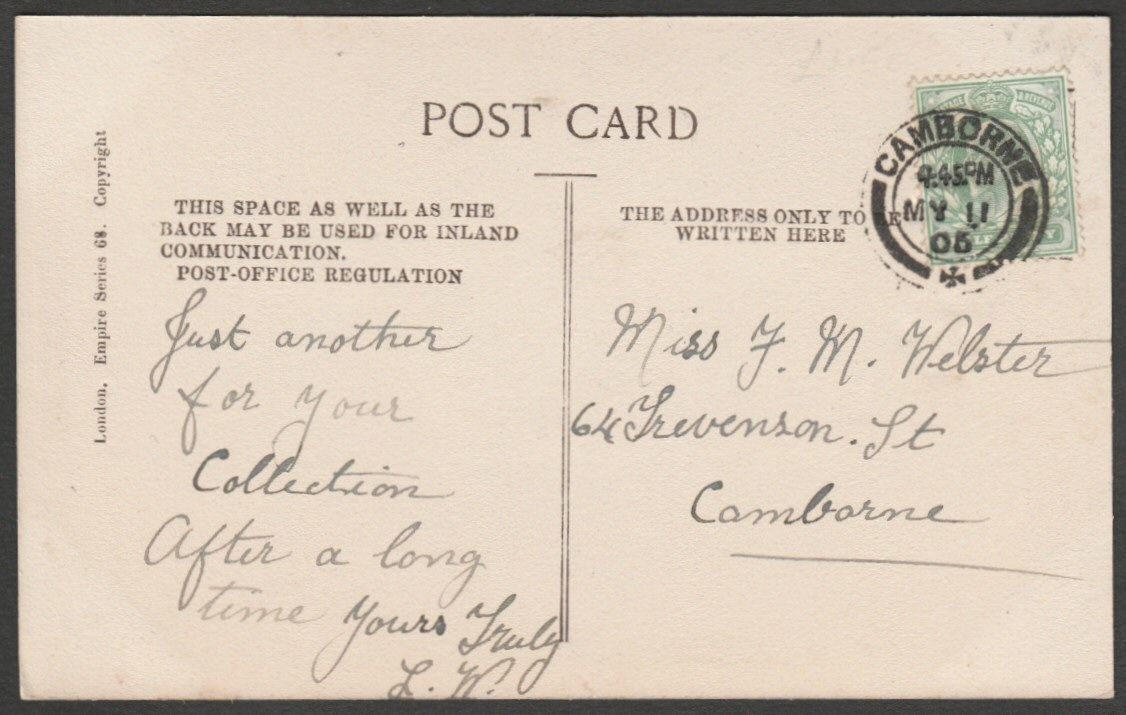 POST CARD
London. Empire Series 68. Copyright
THIS SPACE AS WELL AS THE
BACK MAY BE USED FOR INLAND
COMMUNICATION.
POST-OFFICE REGULATION
Just another
for your
Collection
After a long
time Yours Truly
L. W.
THE ADDRESS ONLY TO BE
WRITTEN HERE
CAMBORNE
9.45PM
MY 11
06
Miss F. M. Webster
64 Trevenson. St
Camborne